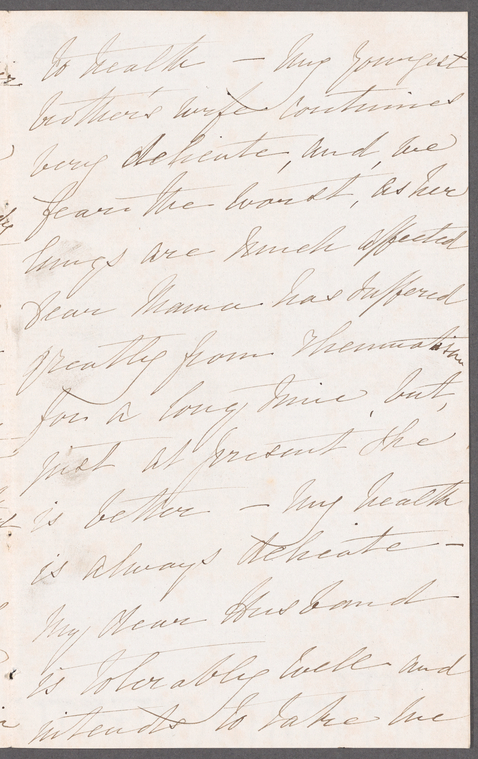 to health – My youngest
brother's wife continues
very delicate, and, we
fear the worst, as her
lungs are much affected
dear Mama has suffered
greatly from rheumatism
for a long time, but,
just at present she
is better – My health
is always delicate –
My dear Husband
is tolerably well and
intends to take me